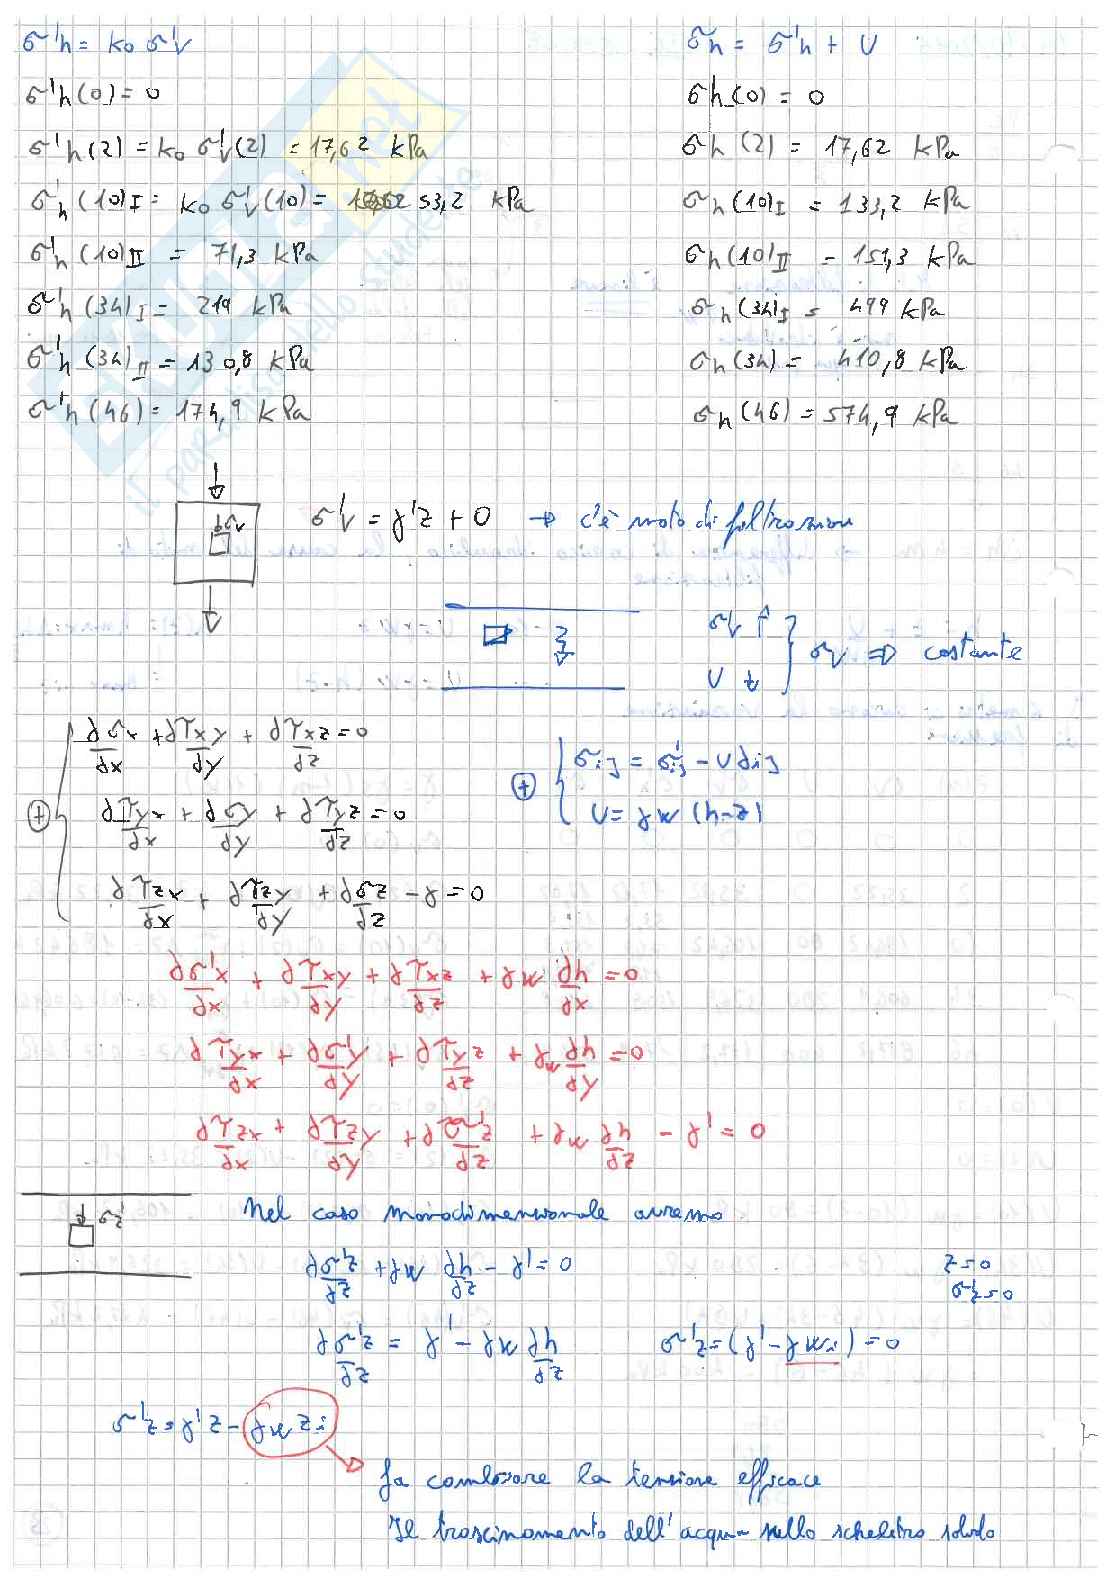 σ'h = k₀ σ'v    σh = σ'h + U
σ'h(0) = 0    σh(0) = 0
σ'h(2) = k₀ σ'v(2) = 17,62 kPa    σh(2) = 17,62 kPa
σ'h(10)I = k₀ σ'v(10) = 53,2 kPa    σh(10)I = 133,2 kPa
σ'h(10)II = 71,3 kPa    σh(10)II = 151,3 kPa
σ'h(34)I = 219 kPa    σh(34)I = 499 kPa
σ'h(34)II = 130,8 kPa    σh(34) = 410,8 kPa
σ'h(46) = 174,9 kPa    σh(46) = 574,9 kPa
σv    σ'v = γ'z + 0 → c'è moto di filtrazione
σ'v ↑
U ↓ } σv ⇒ costante
∂σx/∂x + ∂τxy/∂y + ∂τxz/∂z = 0
∂τyx/∂x + ∂σy/∂y + ∂τyz/∂z = 0
∂τzx/∂x + ∂τzy/∂y + ∂σz/∂z - γ = 0
+ { σij = σ'ij - U δij
U = γw (h-z)
∂σ'x/∂x + ∂τxy/∂y + ∂τxz/∂z + γw ∂h/∂x = 0
∂τyx/∂x + ∂σ'y/∂y + ∂τyz/∂z + γw ∂h/∂y = 0
∂τzx/∂x + ∂τzy/∂y + ∂σ'z/∂z + γw ∂h/∂z - γ' = 0
σ'z    Nel caso monodimensionale avremo
∂σ'z/∂z + γw ∂h/∂z - γ' = 0    z=0
σ'z=0
∂σ'z/∂z = γ' - γw ∂h/∂z    σ'z = (γ' - γw i) = 0
σ'z = γ'z - γw z i
fa cambiare la tensione efficace
Il trascinamento dell'acqua nello scheletro solido